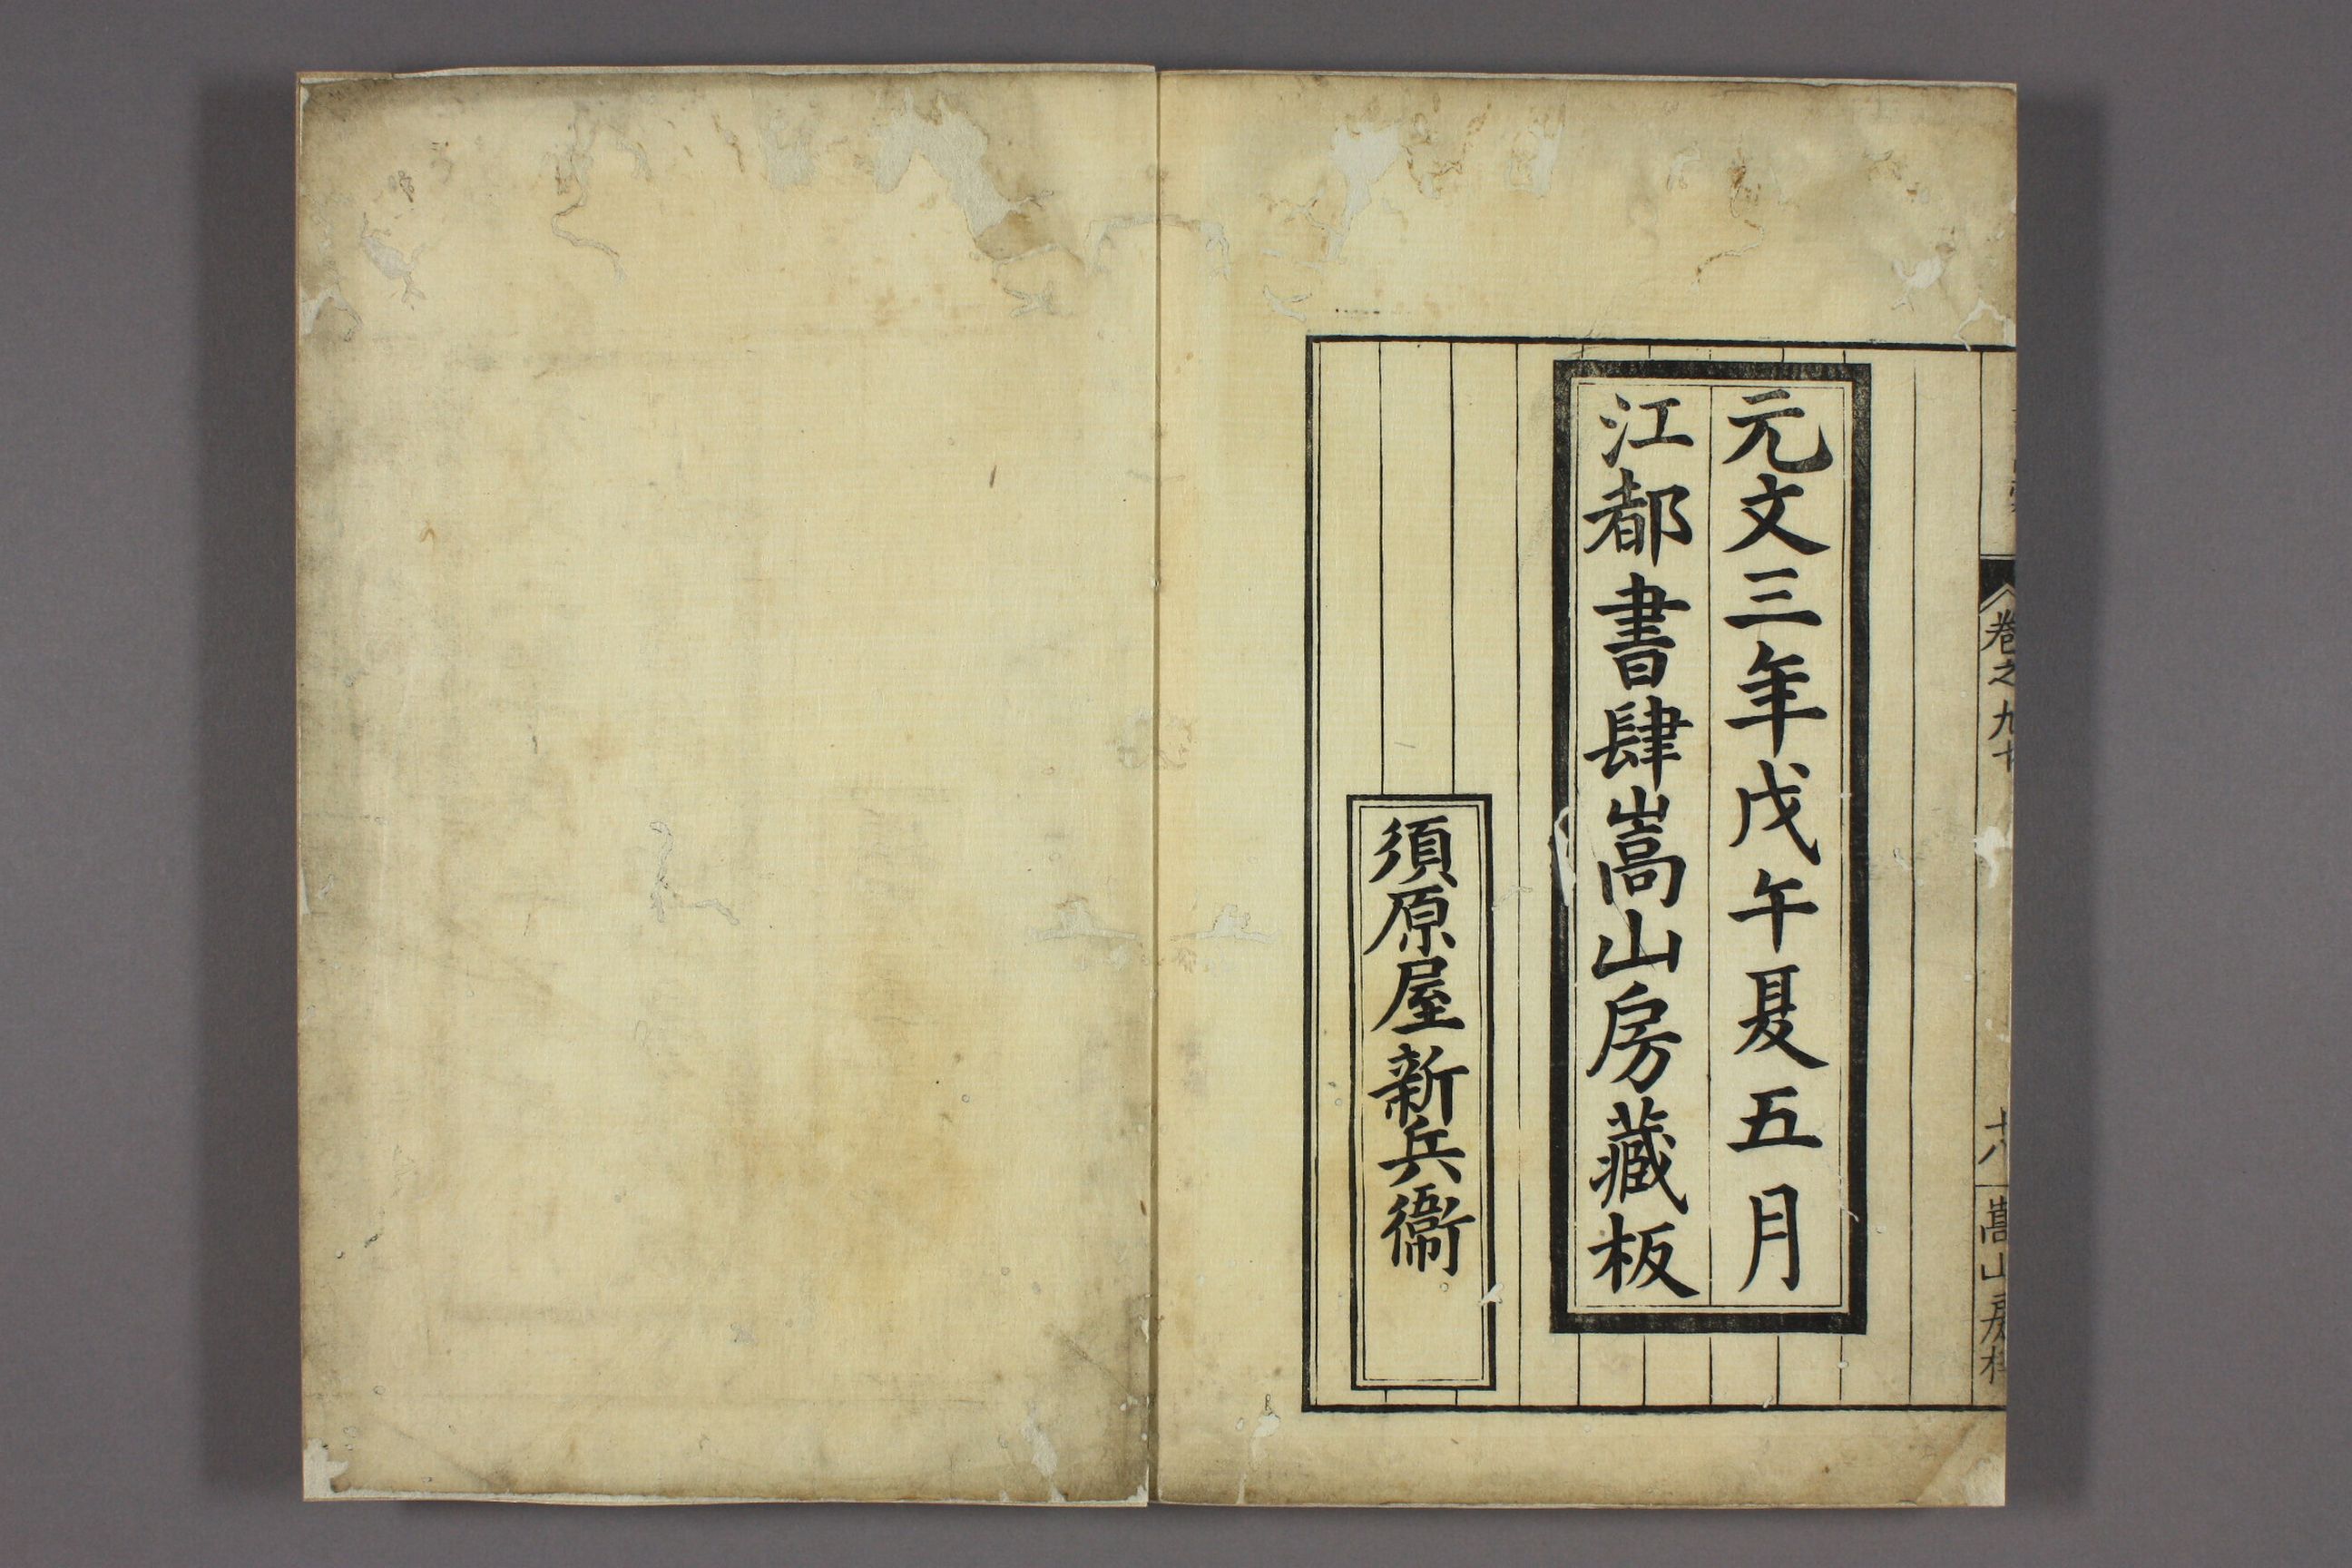 卷之九十
十八
嵩山房梓
元文三年戊午夏五月
江都書肆嵩山房藏板
須原屋新兵衞